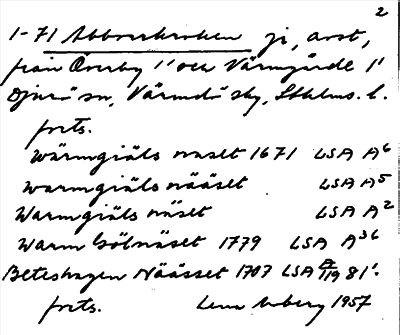 2
1-71 Abborrkroken ji, avst,
från Överby 1¹ och Värmgärde 1¹
Djurö sn, Värmdö sky, Sthlms. l.
forts.
Wärmgiäls naset 1671 LSA A⁶
warmgiäls nääset LSA A⁵
Warmgiäls näset LSA A²
Warm Gölnäset 1779 LSA A³⁶
Beteshagen Näässet 1707 LSA A/119 81¹.
forts. Lena 1957